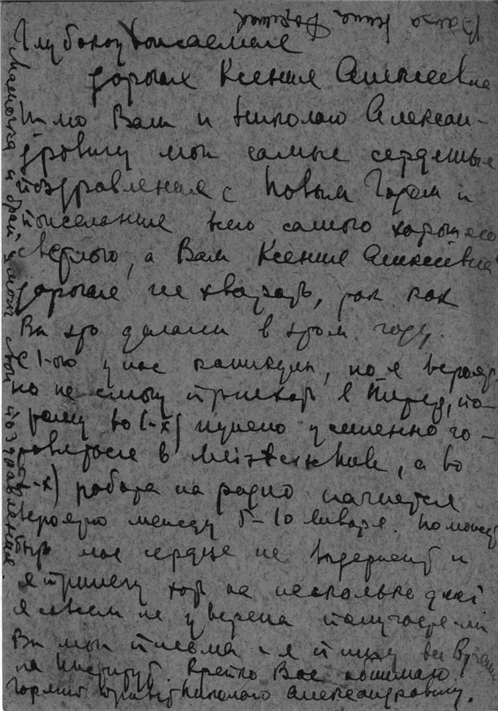 Глубокоуважаемые
дорогая Ксения Алексеевна
Шлю Вам и Николаю Алексан-
дровичу мои самые сердечные
поздравления с Новым Годом и
пожелание всего самого хорошего
светлого, а Вам Ксения Алексеевна
дорогая не хварать, так как
Вы это делали в этом году.
С 1-ого у нас каникулы, но я вероят
но не смогу приехать в Теред, по-
тому во (-х) нужно усиленно го-
товиться в Meisterschule, а во
2-х) работа на радио начнется
вероятно между 5-10 января. Но может
быть мое сердце не выдержит и
я приеду хоть на несколько дней
я совсем не уверена получаете ли
Вы мои письма и я пишу
на Институт. Крепко Вас обнимаю.
Горячий привет Николаю Александровичу.
Мамочка и брат шлют свои поздравления.
Ваша